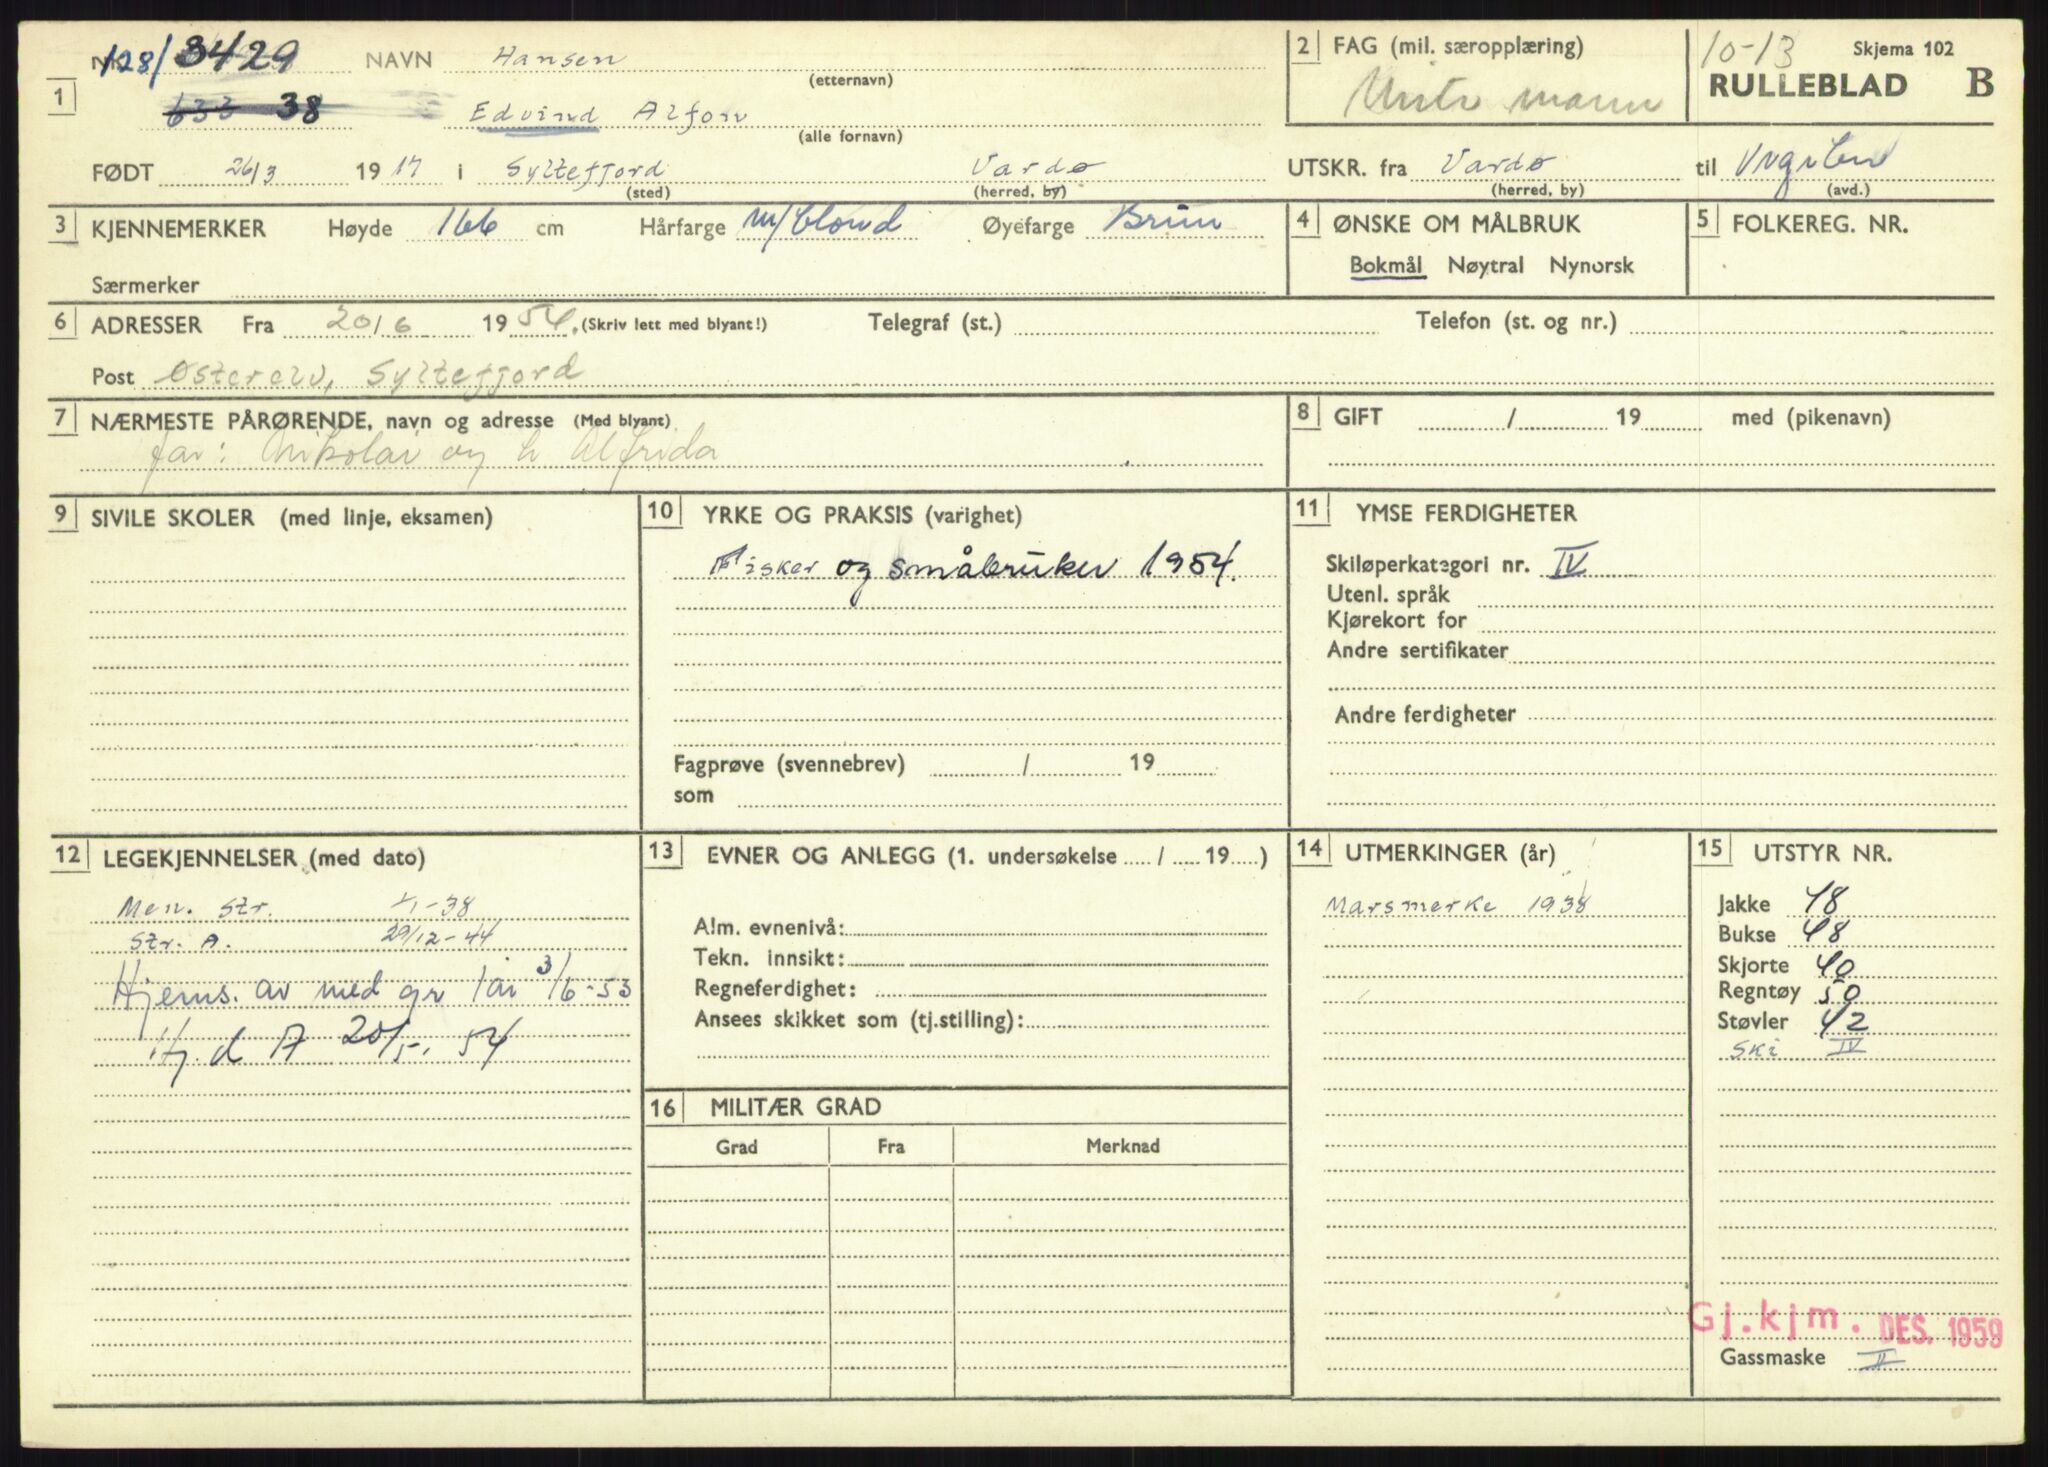 128/3429 NAVN Hansen (etternavn)
1 633 38 Edvind Alfon (alle fornavn)
FØDT 26/3 1917 i Syltefjord (sted) Vardø (herred, by)
2 FAG (mil. særopplæring)
mann
10-13 Skjema 102
RULLEBLAD B
UTSKR. fra Vardø (herred, by) til (avd.)
3 KJENNEMERKER Høyde 166 cm Hårfarge m/blond Øyefarge Brun
Særmerker
4 ØNSKE OM MÅLBRUK
Bokmål Nøytral Nynorsk
5 FOLKEREG. NR.
6 ADRESSER Fra 20/6 1954. (Skriv lett med blyant!) Telegraf (st.) Telefon (st. og nr.)
Post Osterelv, Syltefjord
7 NÆRMESTE PÅRØRENDE, navn og adresse (Med blyant)
far: Nikolai og h Alfrida
8 GIFT / 19 med (pikenavn)
9 SIVILE SKOLER (med linje, eksamen)
10 YRKE OG PRAKSIS (varighet)
Fisker og småbruker 1954.
Fagprøve (svennebrev) / 19
som
11 YMSE FERDIGHETER
Skiløperkategori nr. IV
Utenl. språk
Kjørekort for
Andre sertifikater
Andre ferdigheter
12 LEGEKJENNELSER (med dato)
Men. Str. -38
Str. A. 29/12-44
Hjems. av med gr 1 år 3/6-53
Hj. d A 20/5. 54
13 EVNER OG ANLEGG (1. undersøkelse / 19 )
Alm. evnenivå:
Tekn. innsikt:
Regneferdighet:
Ansees skikket som (tj.stilling):
16 MILITÆR GRAD
Grad Fra Merknad
14 UTMERKINGER (år)
Marsmerke 1938
15 UTSTYR NR.
Jakke 48
Bukse 48
Skjorte 40
Regntøy 50
Støvler 42
Ski IV
Gj.kjm. DES. 1959
Gassmaske II